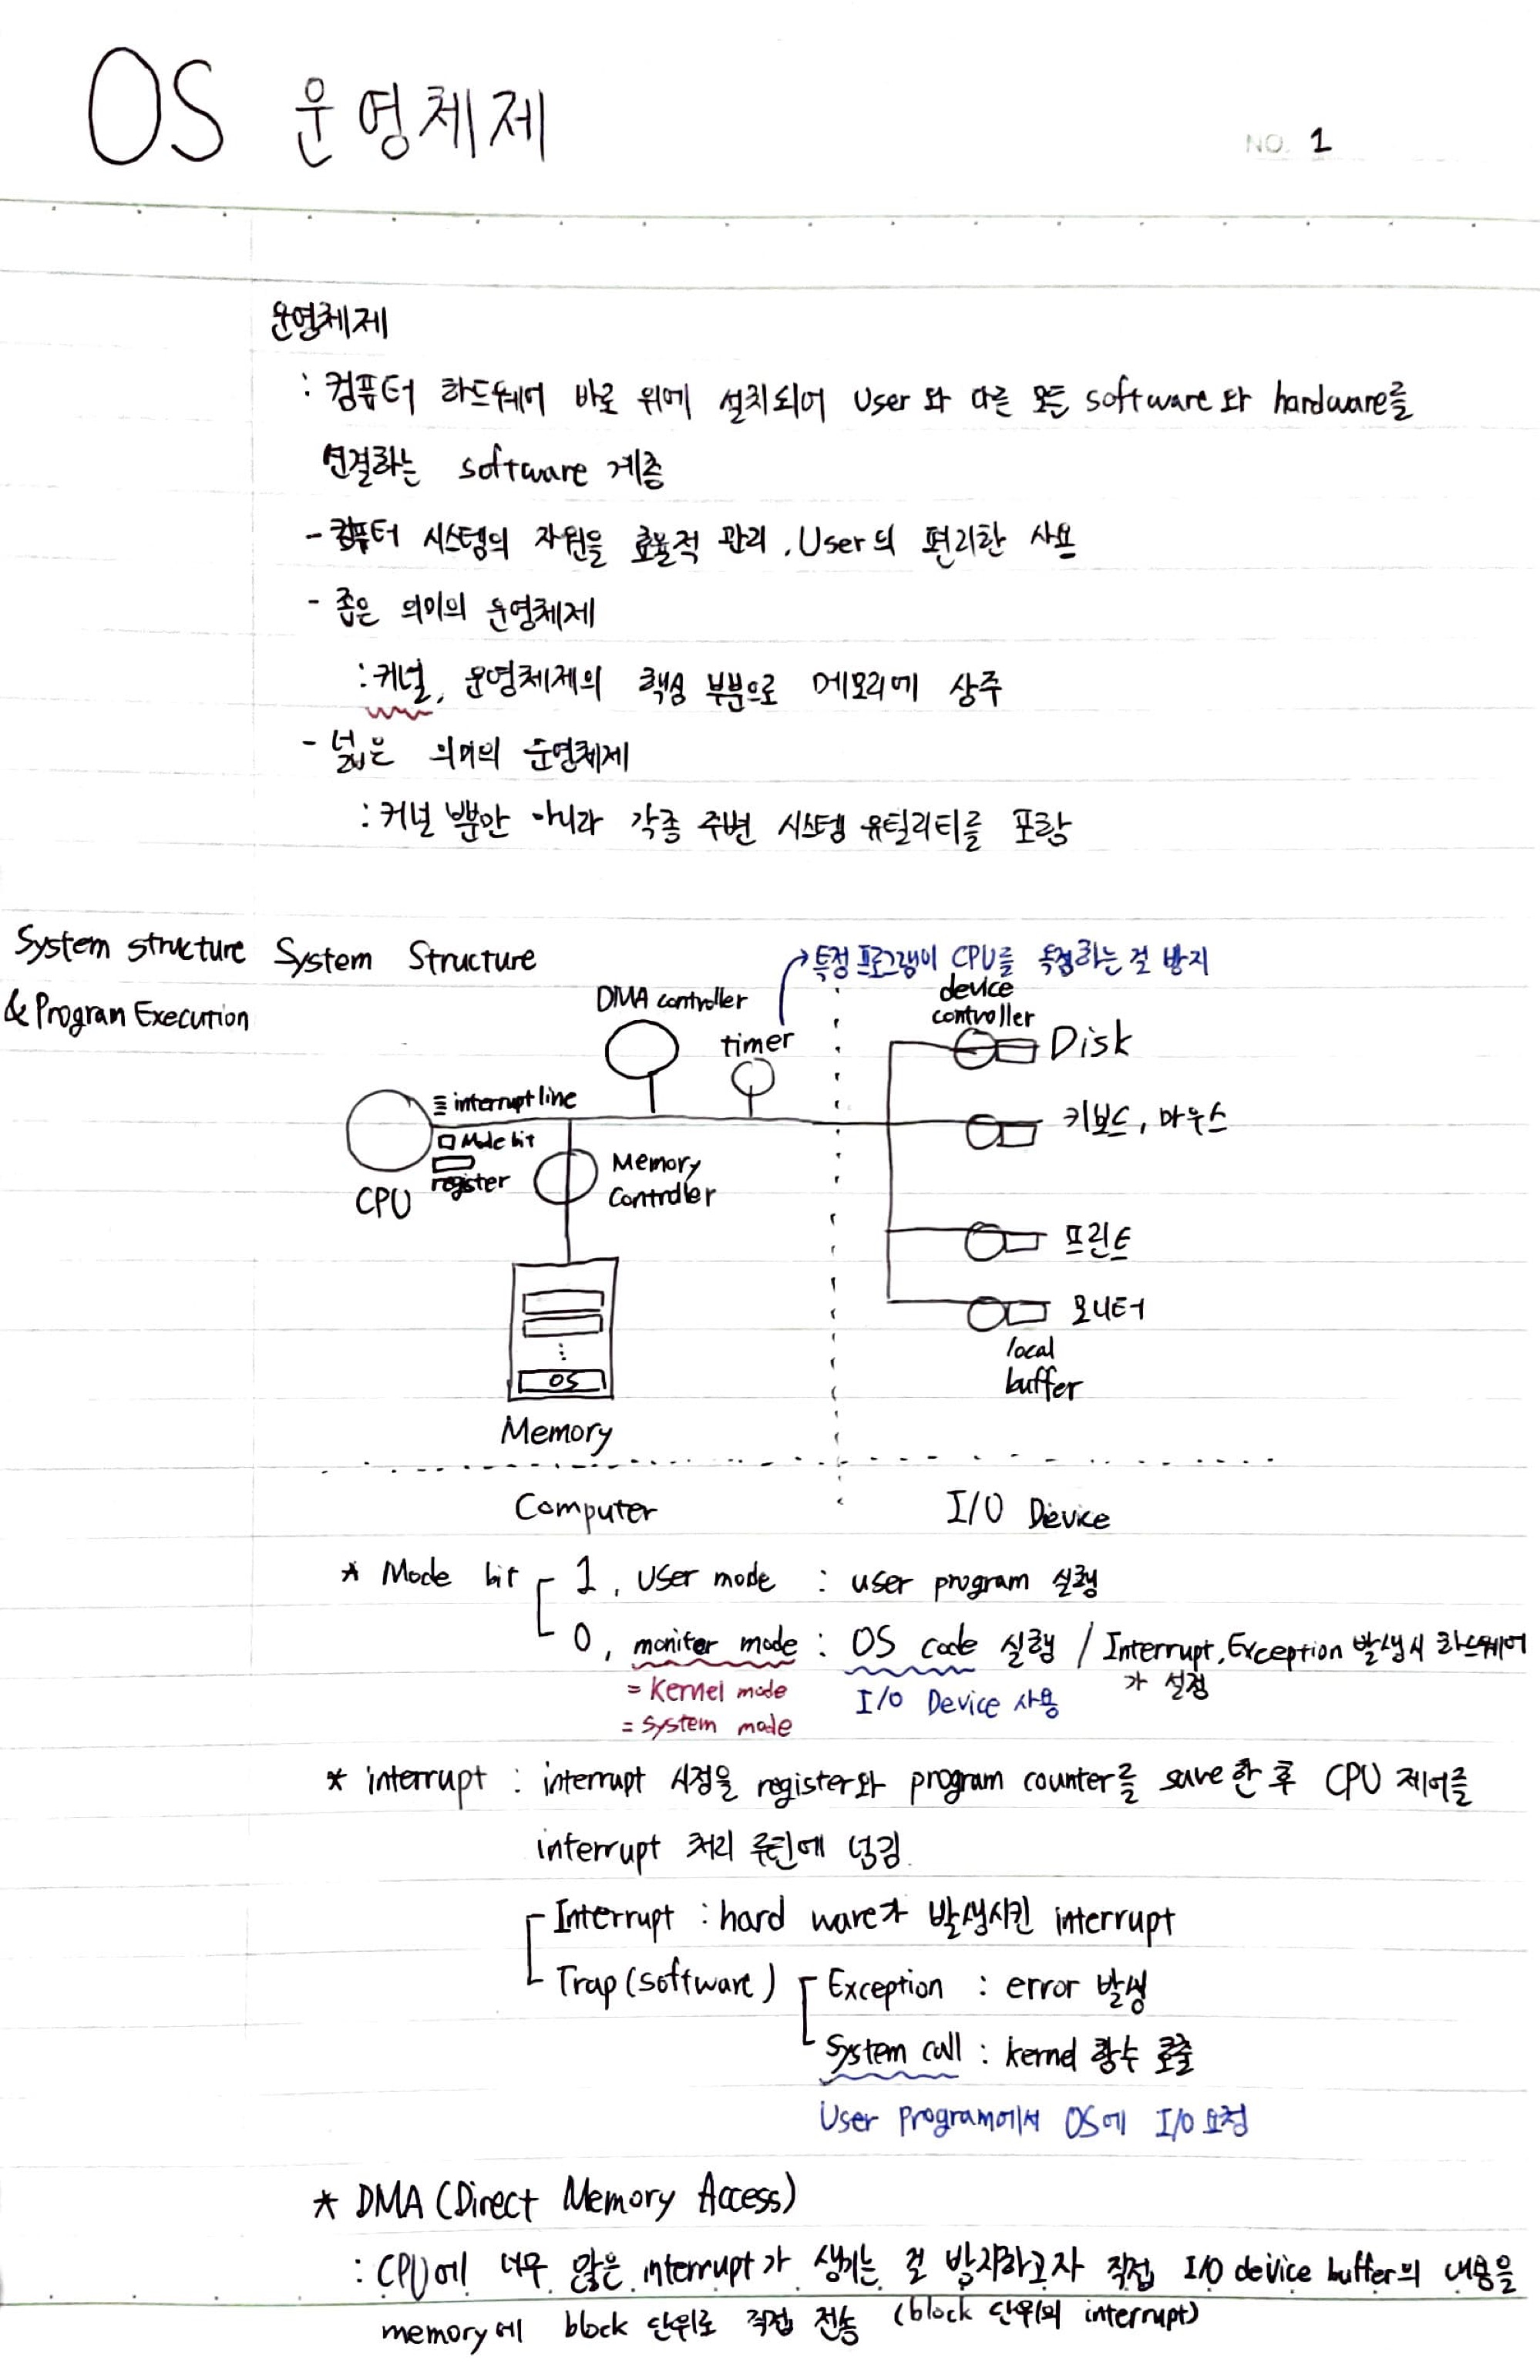 OS 운영체제
NO. 1
운영체제
: 컴퓨터 하드웨어 바로 위에 설치되어 user와 다른 모든 software와 hardware를
연결하는 software 계층
- 컴퓨터 시스템의 자원을 효율적 관리, User의 편리한 사용
- 좁은 의미의 운영체제
: 커널, 운영체제의 핵심 부분으로 메모리에 상주
- 넓은 의미의 운영체제
: 커널 뿐만 아니라 각종 주변 시스템 유틸리티를 포함
System structure
& Program Execution
System Structure
특정 프로그램이 CPU를 독점하는 걸 방지
DMA controller
timer
device
controller
Disk
interrupt line
Mode bit
register
CPU
Memory
Controller
키보드, 마우스
프린트
모니터
local
buffer
OS
Memory
Computer
I/O Device
* Mode bit 1, user mode : user program 실행
0, moniter mode : OS code 실행 / Interrupt, Exception 발생시 하드웨어
가 설정
= Kernel mode
I/O Device 사용
= System mode
* interrupt : interrupt 시점을 register와 program counter를 save한 후 CPU 제어를
interrupt 처리 루틴에 넘김.
Interrupt : hard ware가 발생시킨 interrupt
Trap (software) Exception : error 발생
System call : kernel 함수 호출
User program에서 OS에 I/O 요청
* DMA (Direct Memory Access)
: CPU에 너무 많은 interrupt가 생기는 걸 방지하고자 직접 I/O device buffer의 내용을
memory에 block 단위로 직접 전송 (block 단위의 interrupt)